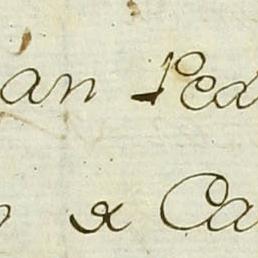 an Ped
& Ca